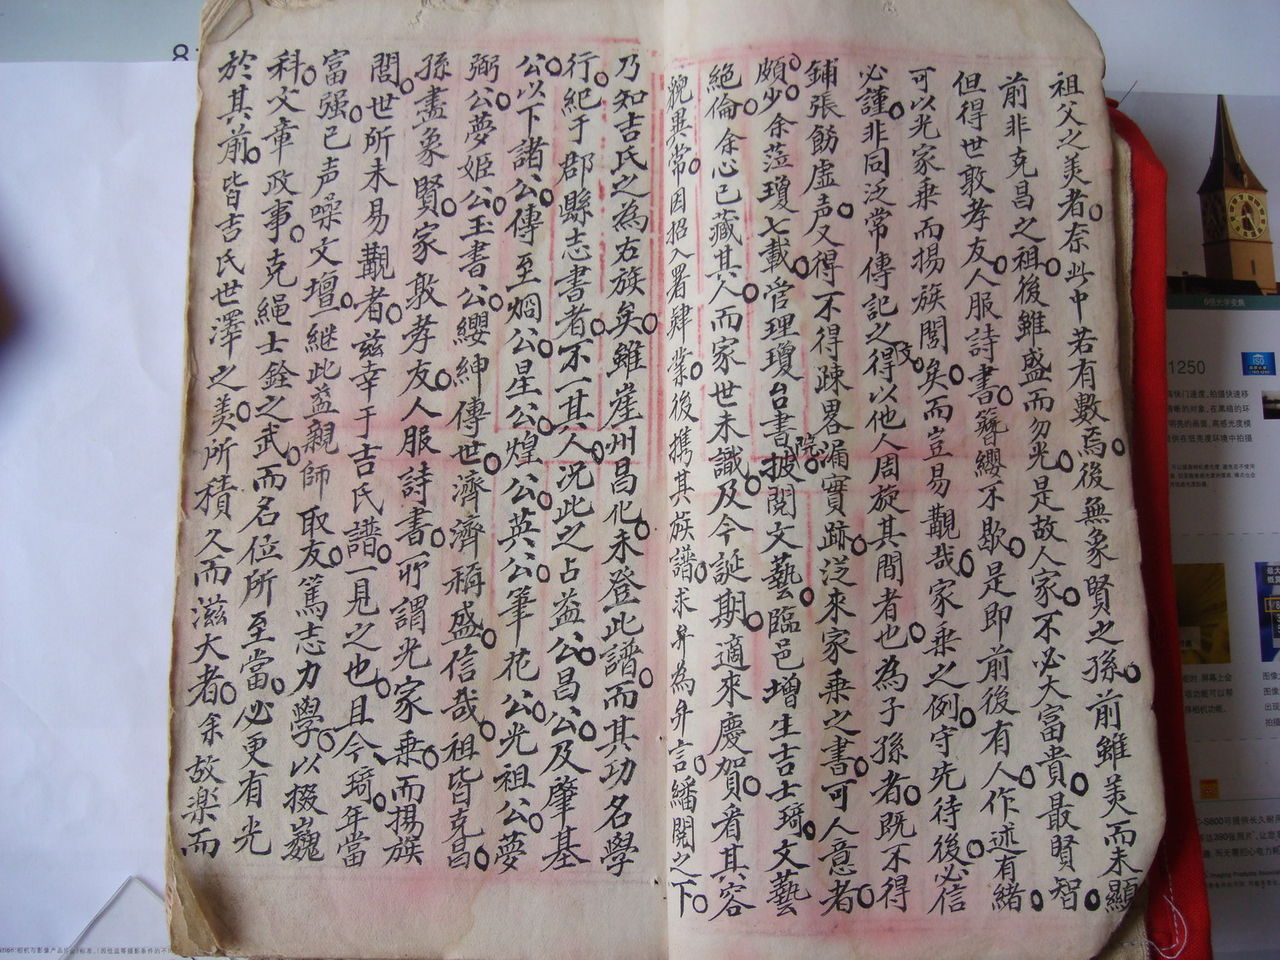 祖父之美者奈此中若有數焉後無象賢之孫前雖美而未顯
前非克昌之祖後雖盛而勿光是故人家不必大富貴最賢智
但得世敦孝友人服詩書簪纓不歇是即前後有人作述有緒
可以光家乘而揚族閭矣而豈易覯哉家乘之例守先待後必信
必謹非同泛常傳記之文得以他人周旋其間者也為子孫者既不得
鋪張飾虛声又得不得疎畧漏實跡泛來家乘之書可人意者
頗少余蒞瓊七載管理瓊台書院披閱文藝臨邑增生吉士琦文藝
絕倫余心已藏其人而家世未識及今誕期適來慶賀看其容
貌異常因招入署肄業後携其族譜求弁為弁言繙閱之下
乃知吉氏之為右族矣雖崖州昌化未登此譜而其功名學
行紀于郡縣志書者不一其人况此之占益公昌公及肇基
公以下諸公傳至烱公星公煌公英公筆花公光祖公夢
弼公夢姬公玉書公纓紳傳世濟濟稱盛信哉祖皆克昌
孫盡象賢家敦孝友人服詩書所謂光家乘而揚族
閭世所未易覯者茲幸于吉氏譜一見之也且今琦年當
富强已声噪文壇继此益親師取友篤志力學以掇巍
科文章政事克繩士銓之武而名位所至當必更有光
於其前皆吉氏世澤之美所積久而滋大者余故楽而
1250